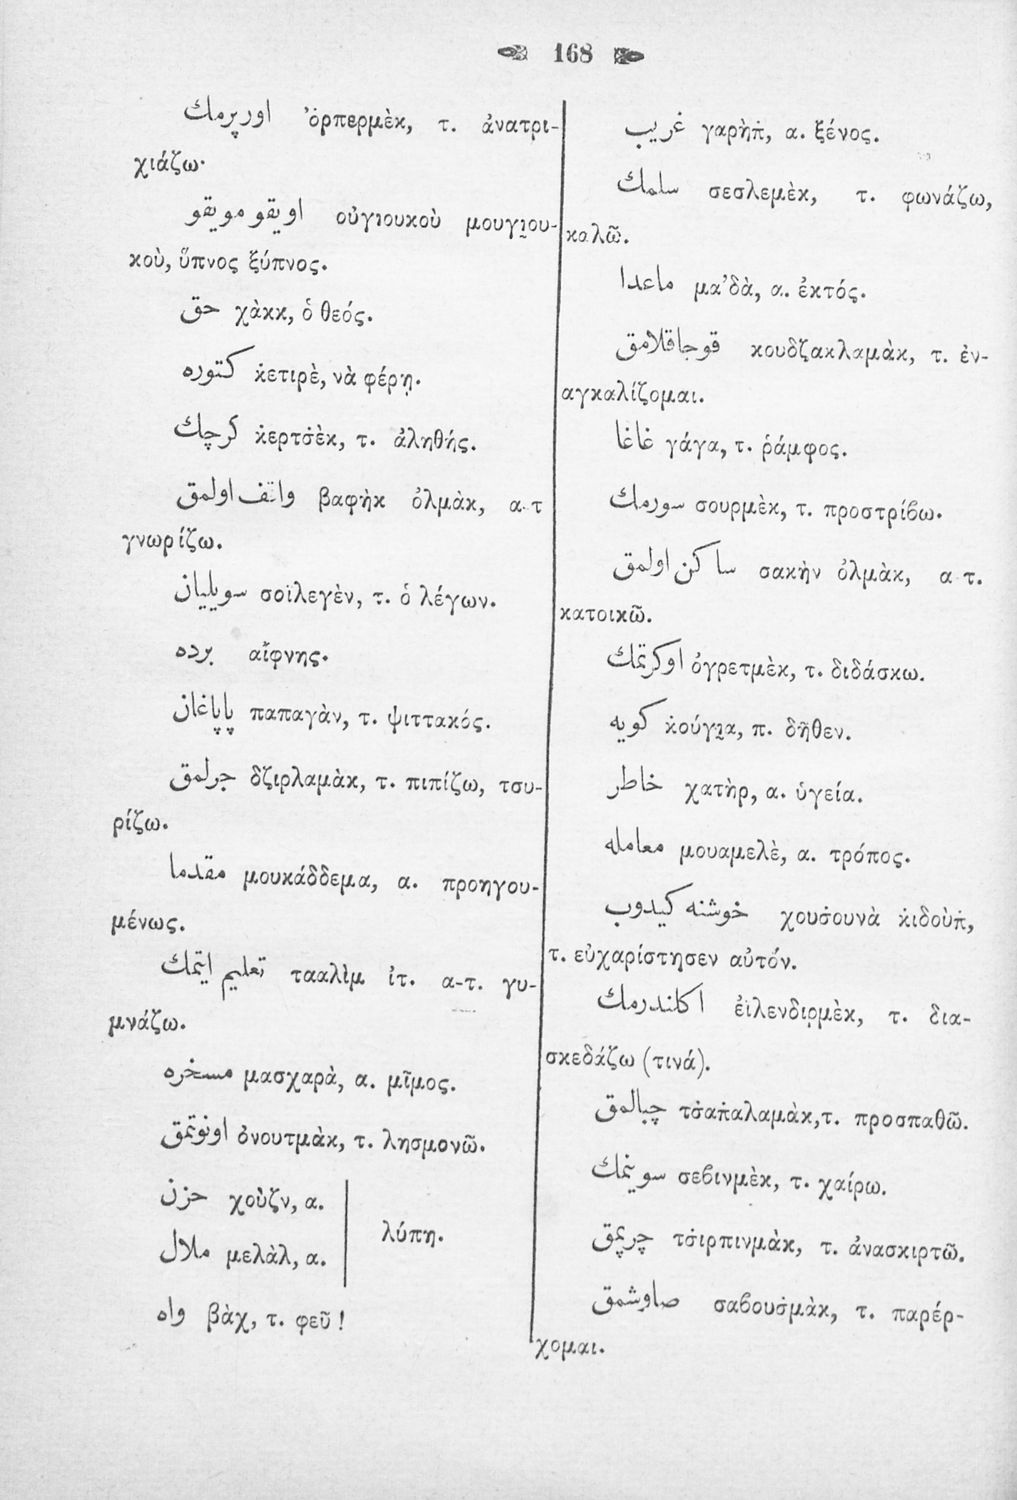 168
اورپرمك ὀρπερμὲκ, τ. ἀνατρι-
χιάζω·
اويقو مويقو οὐγιουκοὺ μουγιου-
κοὺ, ὕπνος ξύπνος.
حق χὰκκ, ὁ θεός.
كتوره κ̇ετιρὲ, νὰ φέρῃ.
كرچك κ̇ερτσ̇ὲκ, τ. ἀληθής.
واقف اولمق βαφὴκ ὀλμὰκ, α-τ
γνωρίζω.
سويليان σοϊλεγὲν, τ. ὁ λέγων.
برده αἴφνης.
پاپاغان παπαγὰν, τ. ψιττακός.
جرلمق δζιρλαμὰκ, τ. πιπίζω, τσυ-
ρίζω.
مقدما μουκάδδεμα, α. προηγου-
μένως.
تعليم ايتمك τααλὶμ ἰτ. α-τ. γυ-
μνάζω.
مسخره μασχαρὰ, α. μῖμος.
اونوتمق ὀνουτμὰκ, τ. λησμονῶ.
حزن χοὺζν, α.
λύπη.
ملال μελὰλ, α.
واه βὰχ, τ. φεῦ!
غريب γαρὴπ̇, α. ξένος.
سلمك σεσλεμὲκ, τ. φωνάζω,
καλῶ.
ماعدا μα’δὰ, α. ἐκτός.
قوجاقلامق κουδζακλαμὰκ, τ. ἐν-
αγκαλίζομαι.
غاغا γάγα, τ. ῥάμφος.
سورمك σουρμὲκ, τ. προστρίβω.
ساكن اولمق σακὴν ὀλμὰκ, α-τ.
κατοικῶ.
اوكرتمك ὀγρετμὲκ, τ. διδάσκω.
كويه κ̇ούγια, π. δῆθεν.
خاطر χατὴρ, α. ὑγεία.
معامله μουαμελὲ, α. τρόπος.
خوشنه كيدوب χουσ̇ουνὰ κ̇ιδοὺπ̇,
τ. εὐχαρίστησεν αὐτόν.
اكلندرمك ἐϊλενδιρμὲκ, τ. δια-
σκεδάζω (τινά).
چبالمق τσ̇απ̇αλαμὰκ, τ. προσπαθῶ.
سوينمك σεβινμὲκ, τ. χαίρω.
چرپمق τσ̇ιρπινμὰκ, τ. ἀνασκιρτῶ.
صاوشمق σαβουσ̇μὰκ, τ. παρέρ-
χομαι.